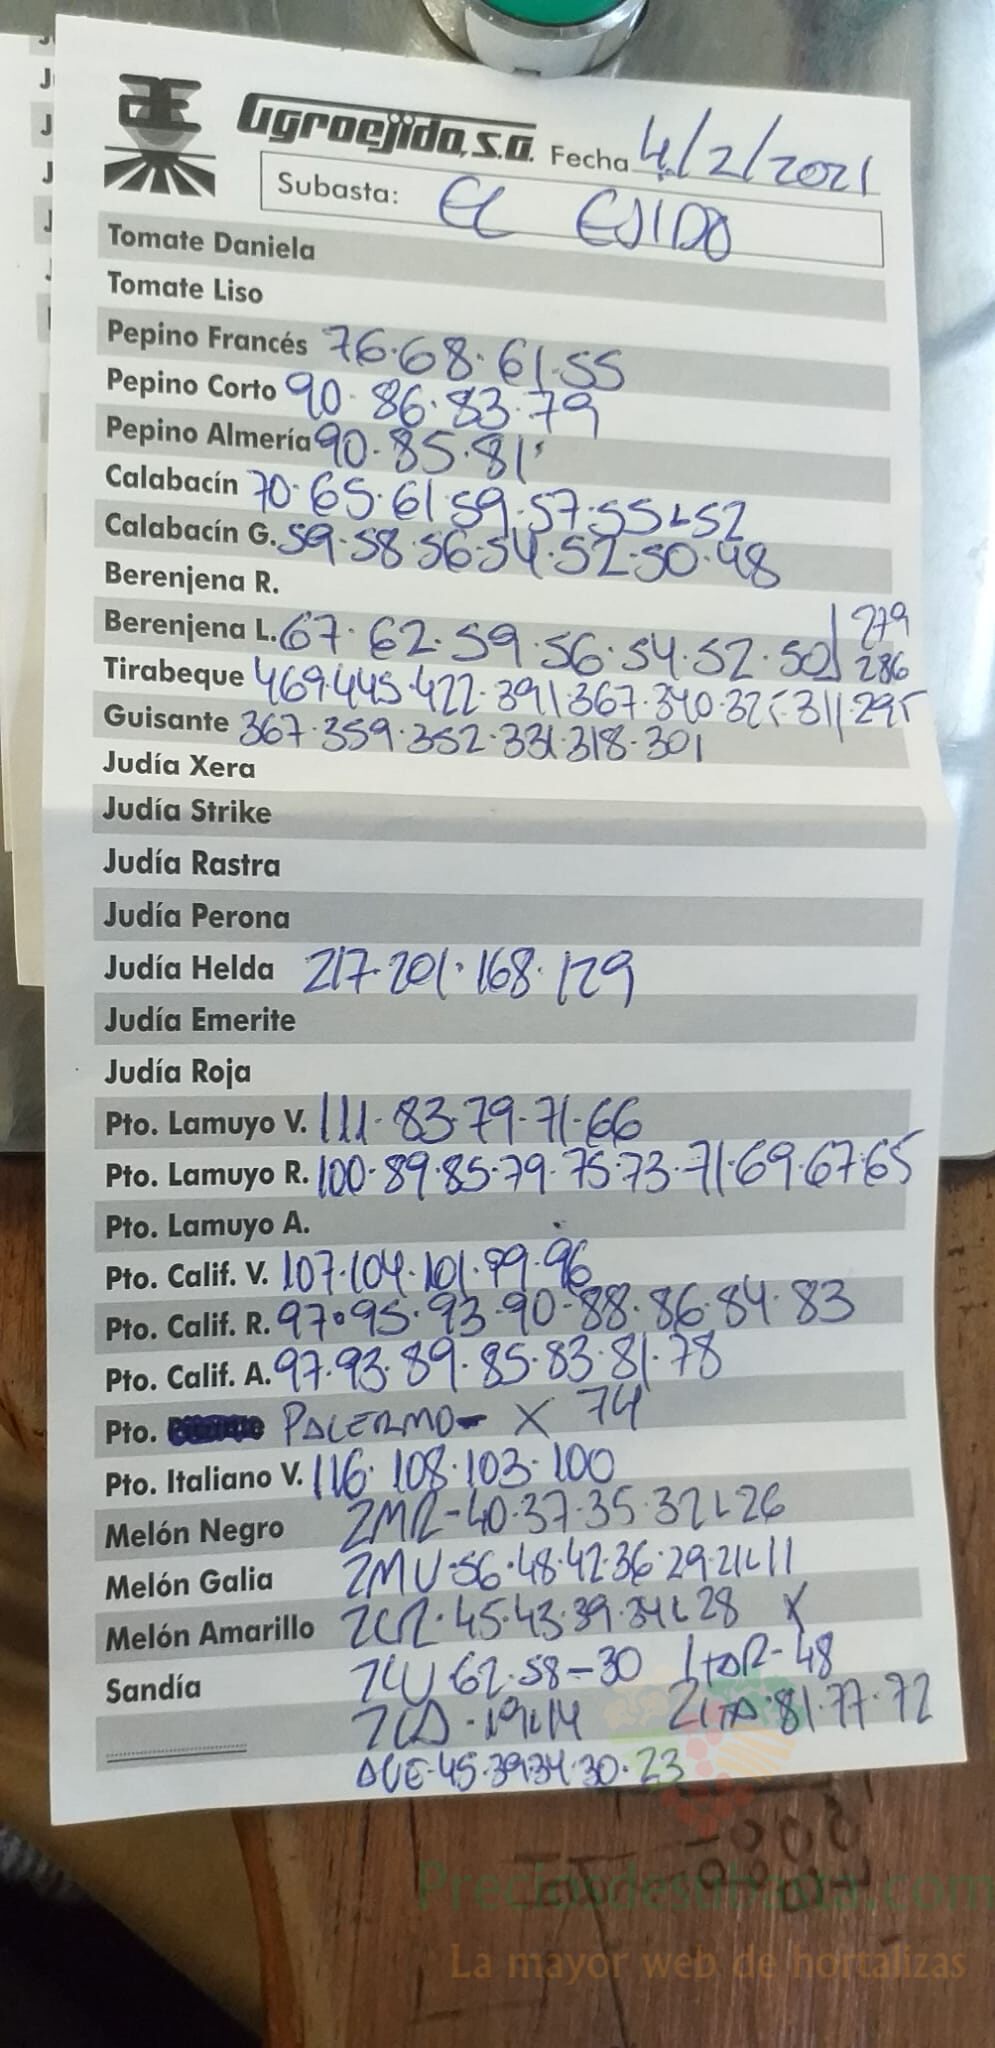 Agroejido, S.A. Fecha 4/2/2021
Subasta: EL EJIDO
Tomate Daniela
Tomate Liso
Pepino Francés 76·68·61·55
Pepino Corto 90·86·83·79
Pepino Almería 90·85·81
Calabacín 70·65·61·59·57·55L52
Calabacín G. 59·58·56·54·52·50·48
Berenjena R.
Berenjena L. 67·62·59·56·54·52·50
279
286
Tirabeque 469·445·422·391·367·340·325·311·295
Guisante 367·359·352·331·318·301
Judía Xera
Judía Strike
Judía Rastra
Judía Perona
Judía Helda 217·201·168·129
Judía Emerite
Judía Roja
Pto. Lamuyo V. 111·83·79·71·66
Pto. Lamuyo R. 100·89·85·79·75·73·71·69·67·65
Pto. Lamuyo A.
Pto. Calif. V. 107·104·101·99·96
Pto. Calif. R. 97·95·93·90·88·86·84·83
Pto. Calif. A. 97·93·89·85·83·81·78
Pto. PALERMO - X 74
Pto. Italiano V. 116·108·103·100
Melón Negro 2MR-40·37·35·32L26
Melón Galia 2MV·56·48·42·36·29·21L11
Melón Amarillo 2CR·45·43·39·34L28 X
Sandía 2CV 62·58-30 ITAR-48
2CA·19L14 81·77·72
ACE-45·39·34·30·23
Preciosdesubasta.com
La mayor web de hortalizas